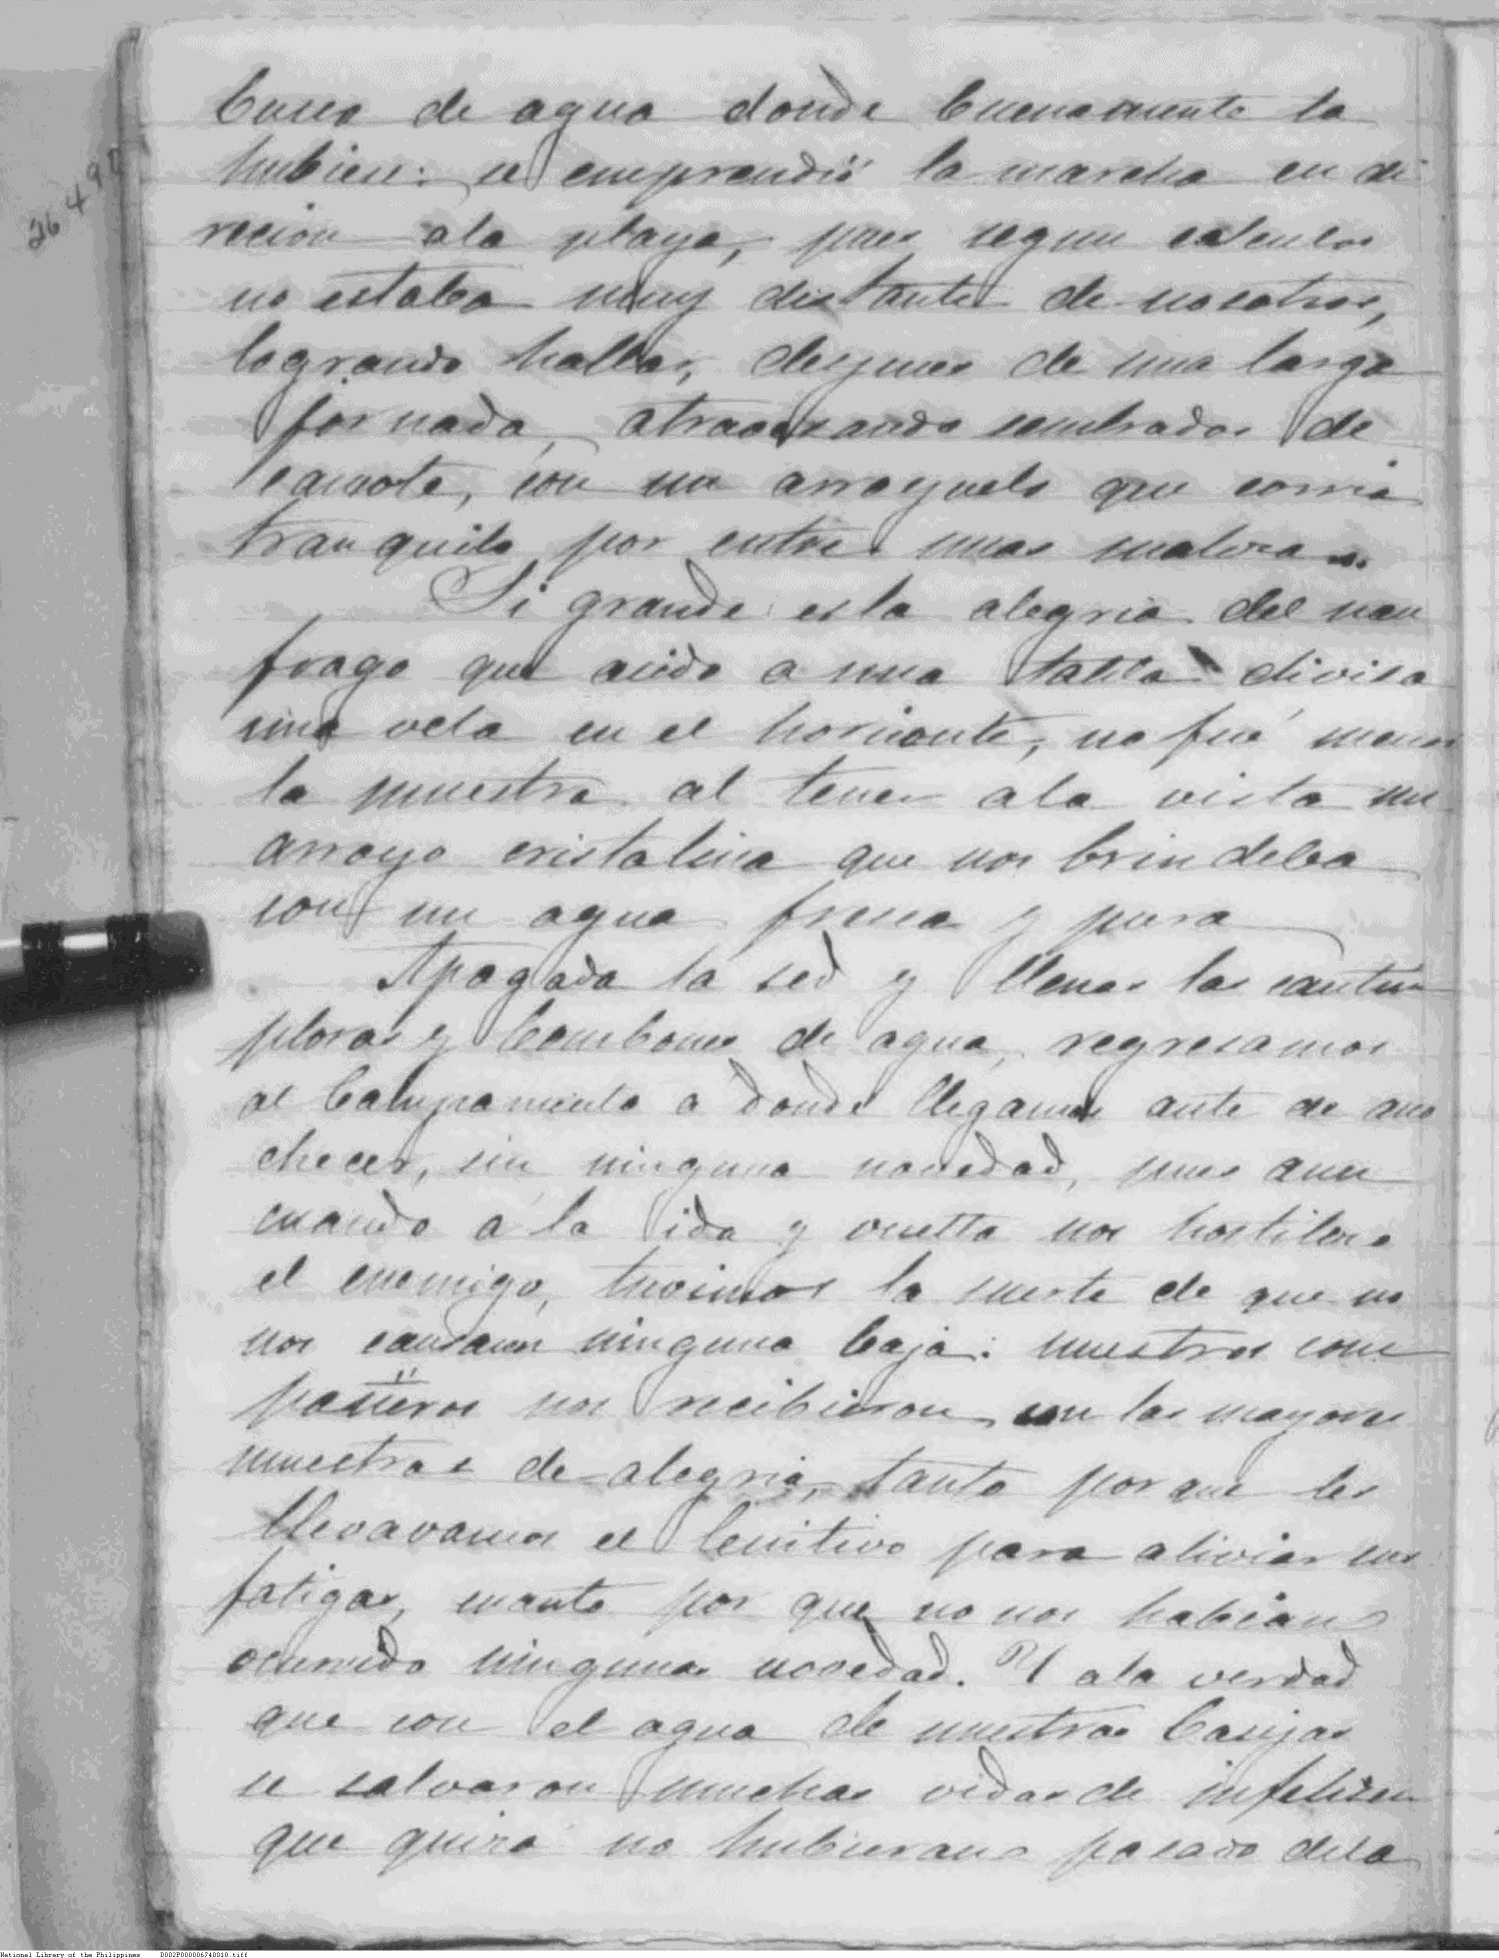 busca de agua donde buenamente la
hubiese: se emprendió la marcha en di
recion ala playa, pues segun calculos
no estaba muy distante de nosotros,
logrando hallar, despues de una larga
jornada, atravesando sembrados de
camote, con un arroyuelo que corria
tranquilo por entre unas malezas.
Si grande es la alegria del nau
frago que asido a una tabla divisa
una vela en el horizonte, no fué menor
la nuestra al tener ala vista un
arroyo cristalino que nos brindaba
con un agua fresca y pura
Apagada la sed y llenas las cantim
ploras y bombones de agua, regresamos
al Campamento a donde llegamos ante de ano
checer, sin ninguna novedad, pues aun
cuando a la ida y vuelta nos hostilizó
el enemigo, tuvimos la suerte de que no
nos causaron ninguna baja: nuestros com
pañeros nos recibieron con las mayores
muestras de alegria, tanto porque les
llevavamos el lenitivo para aliviar sus
fatigas, cuanto por que no nos habian
ocurrido ninguna novedad. Y ala verdad
que con el agua de nuestras basijas
se salvaron muchas vidas de infelices
que quizá no hubieran pasado dela
26490
National Library of the Philippines D002P000006740010.tiff